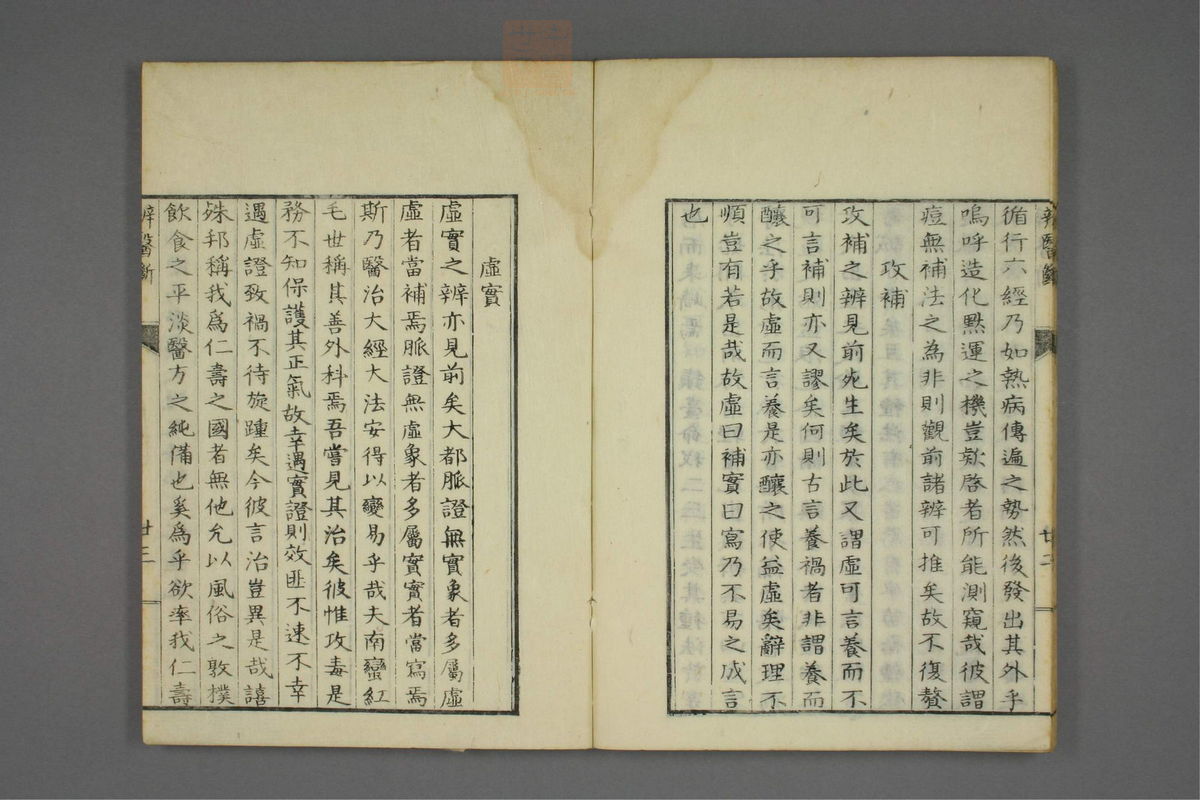 循行六經乃如熱病傳遍之勢然後發出其外乎
嗚呼造化黙運之機豈欵啓者所能測窺哉彼謂
痘無補法之為非則觀前諸辨可推矣故不復贅
攻補
攻補之辨見前死生矣於此又謂虛可言養而不
可言補則亦又謬矣何則古言養禍者非謂養而
釀之乎故虛而言養是亦釀之使益虛矣辭理不
順豈有若是哉故虛曰補實曰寫乃不易之成言
也
辨醫斷
廿二
虛實
虛實之辨亦見前矣大都脈證無實象者多屬虛
虛者當補焉脈證無虛象者多屬實實者當寫焉
斯乃醫治大經大法安得以變易乎哉夫南蠻紅
毛世稱其善外科焉吾嘗見其治矣彼惟攻毒是
務不知保護其正氣故幸遇實證則效匪不速不幸
遇虛證致禍不待旋踵矣今彼言治豈異是哉譆
殊邦稱我爲仁壽之國者無他允以風俗之敦樸
飲食之平淡醫方之純備也奚爲乎欲率我仁壽
辨醫斷
廿三